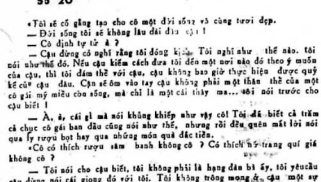 Số 20
«Tôi sẽ cố gắng tạo cho cô một đời sống vô cùng tươi đẹp.
— Đời sống tôi sẽ không lâu dài đâu cậu !
— Cô định tự tử à ?
— Cậu đừng có nghĩ rằng tôi đóng kịch. Tôi nghĩ như thế nào, tôi
nói như thế đó. Nếu cậu kiếm cách đưa tôi đến một nơi nào đó theo ý muốn
của cậu, thì tôi dám thề với cậu, cậu không bao giờ thực hiện được quỷ
kế của cậu đâu. Cậu sẽ ôm vào tay cậu không phải một thân thể của một
cô gái mỹ miều còn sống, mà chỉ là một cái thây ma... tôi nói trước cho
cậu biết !
— À, à, cái gì mà nói khủng khiếp như vậy cô! Tôi đã biết cả trăm
cả chục cô gái ban đầu cũng nói như thế, nhưng rồi đều quên mất lời nói
qua ly rượu bọt hay qua những món quà đắc tiền.
«Cô có thích rượu sâm banh không cô ? Có thích nữ trang quí giá
không cô ?
— Tôi nói cho cậu biết, tôi không phải là hạng đàn bà ấy, tôi yêu cầu
cậu đừng nói cái giọng đó với tôi. Tôi không trông mong ở cậu một sự